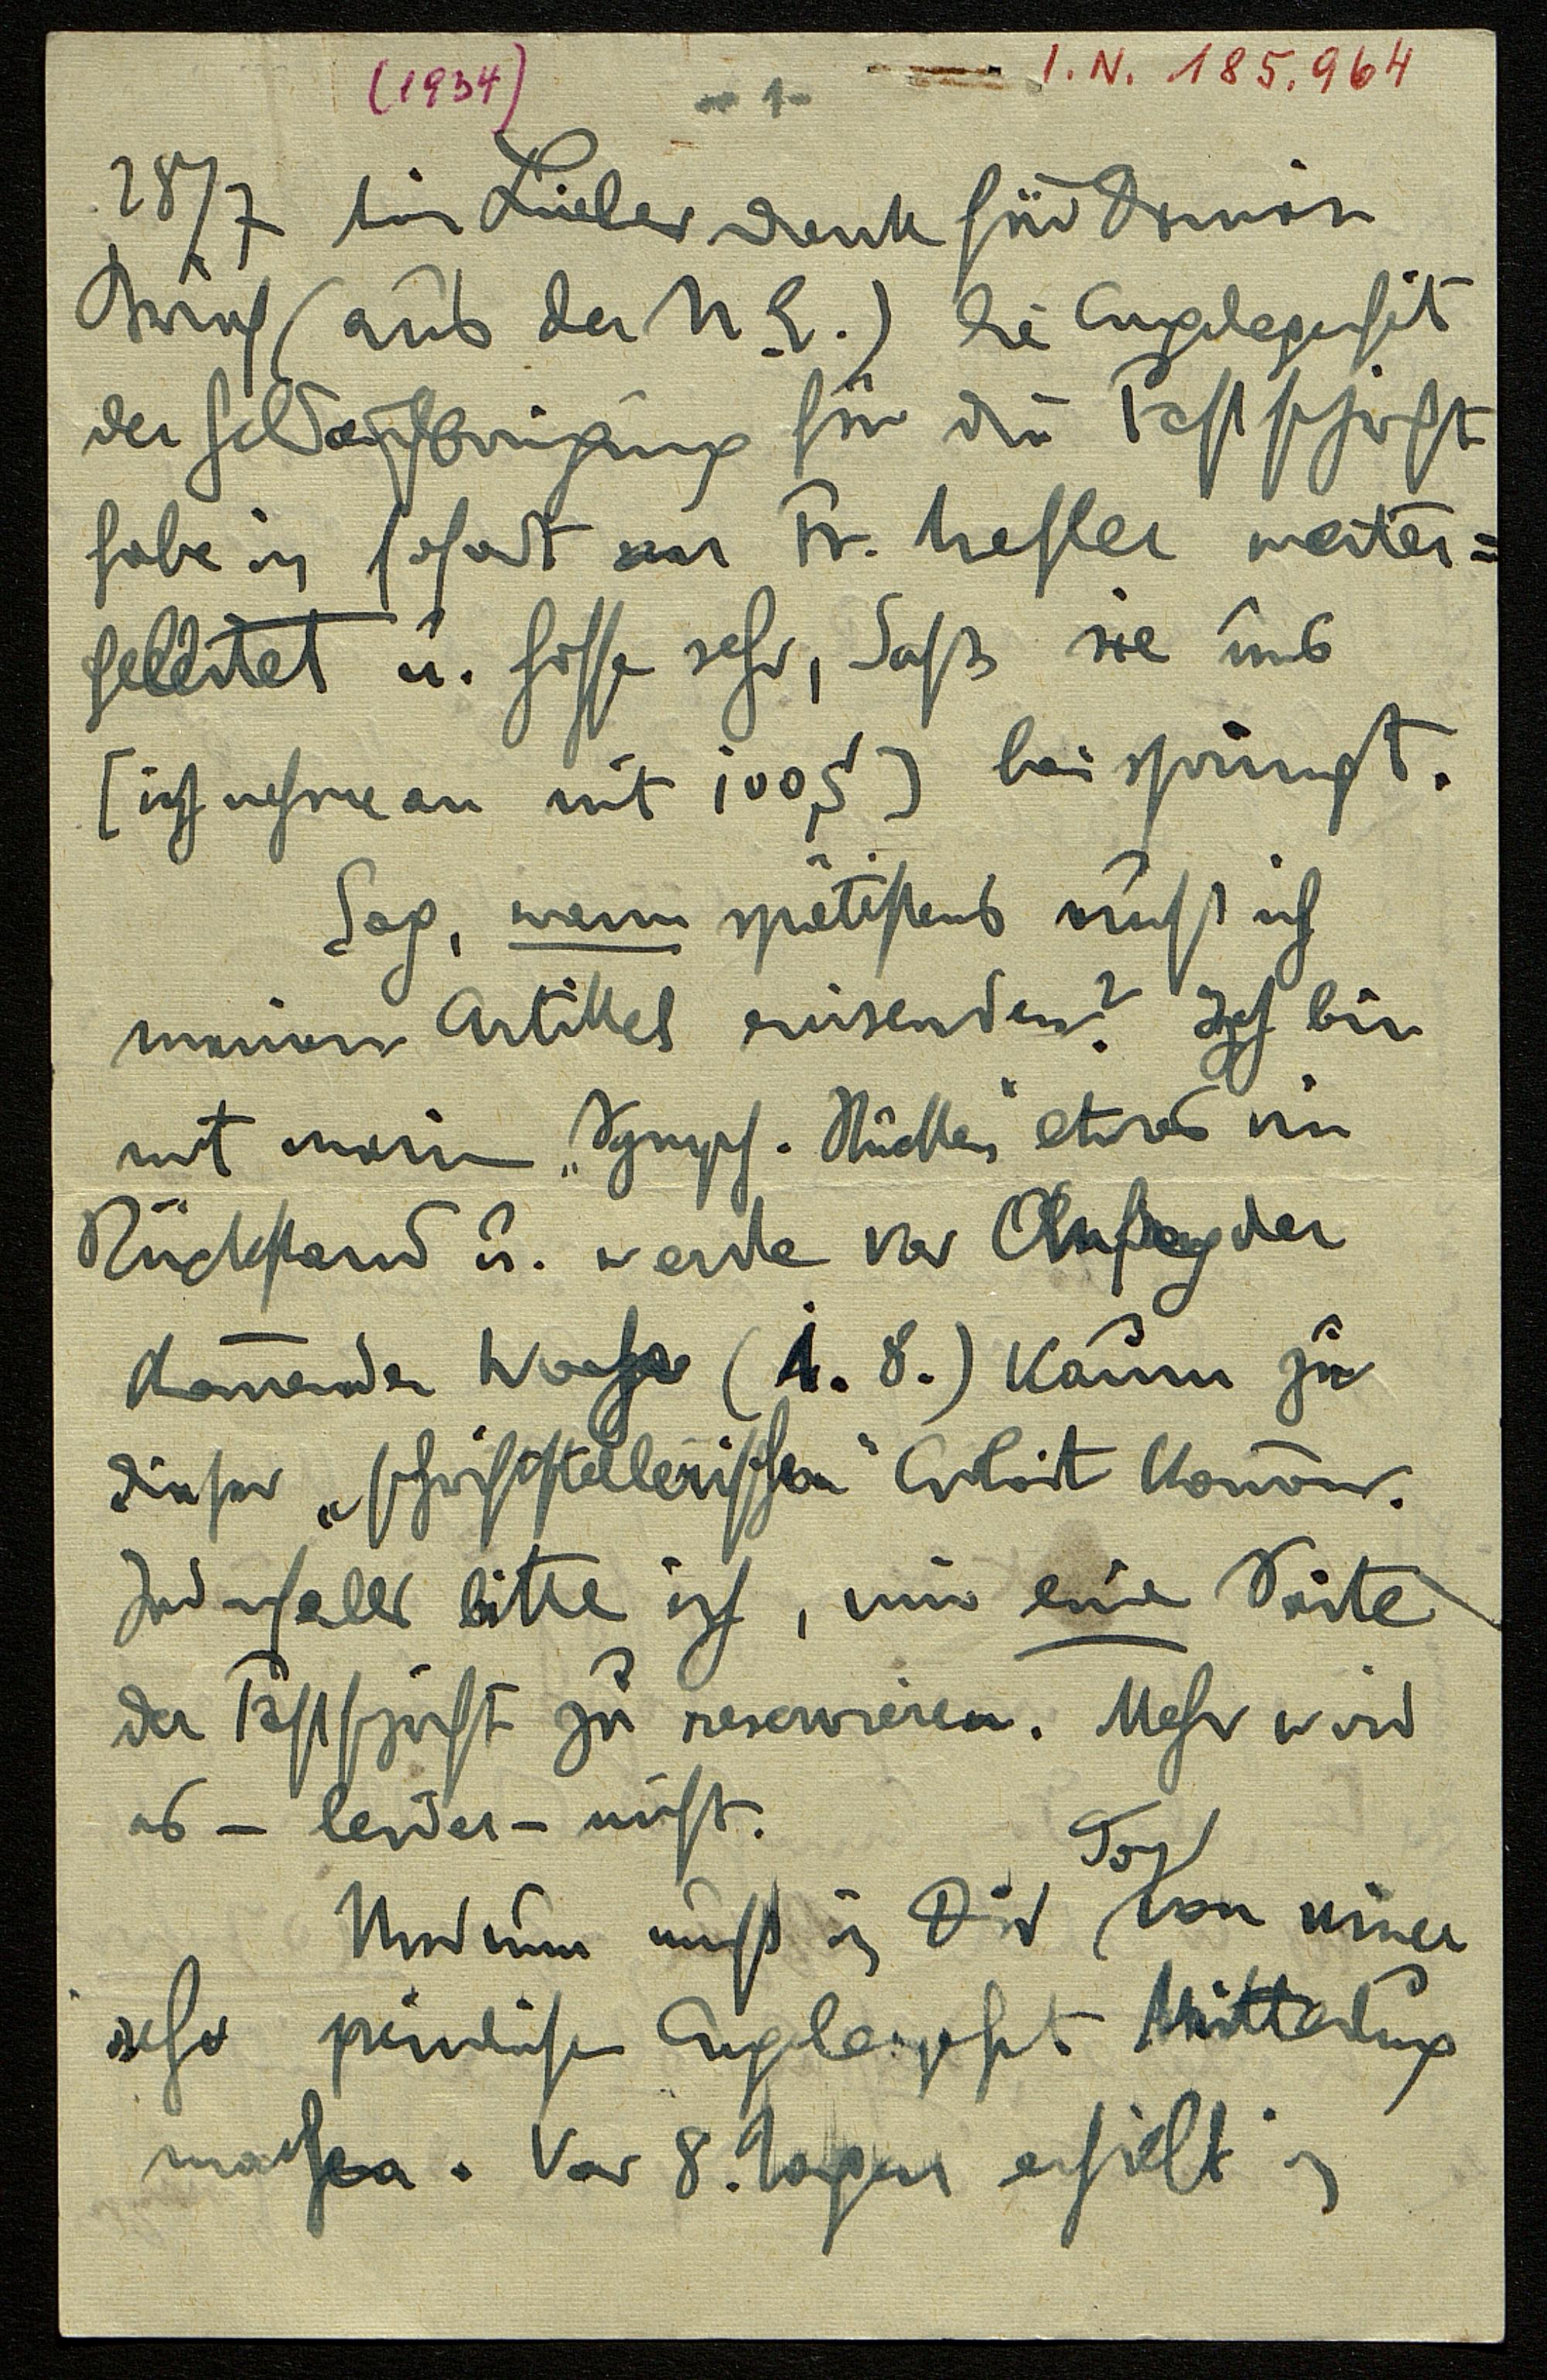 (1934)
- 1 -
I.N. 185.964
28/7 Mein Lieber dank für Deinen
Brief (aus der N.L.) Die Angelegenheit
der Geldaufbringung für die Festschrift
habe ich sofort an Fr. Hefler weiter=
geleitet u. hoffe sehr, daß sie uns
[ich nehme an mit 100 S] beispringt.
Sag, wann spätestens muß ich
meinen Artikel einsenden? Ich bin
mit meinen „Symph. Stücken" etwas im
Rückstand u. werde vor Anfang der
kommenden Woche (1. 8.) kaum zu
dieser „schriftstellerischen" Arbeit kommen.
Jedenfalls bitte ich, mir eine Seite
der Festschrift zu reservieren. Mehr wird
es – leider – nicht.
Und nun muß ich Dir von einer
sehr peinlichen Angelegenheit Mitteilung
machen. Vor 8 Tagen erhielt ich